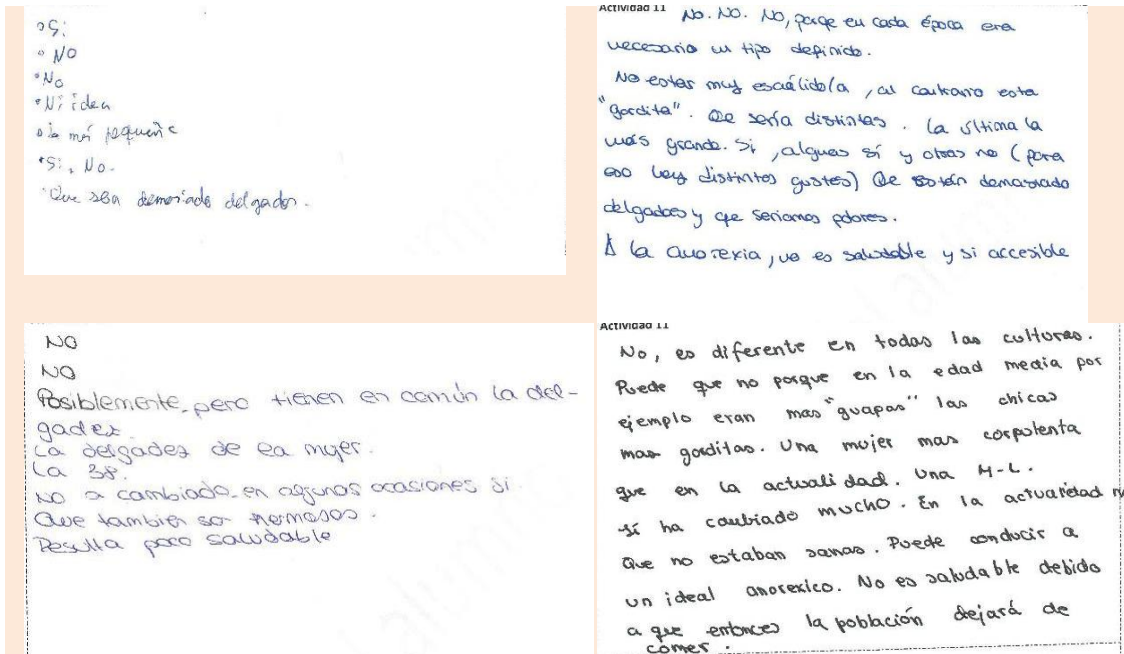 Si
NO
No
Ni idea
la más pequeña
Si, No.
Que sea demasiado delgados.
Actividad 11
No. NO. No, porqe en cada época era
necesario un tipo definido.
No estar muy escuálido/a, al contrario esta
"gordita". Qe sería distintas. La última la
más grande. Si, algunas sí y otras no (para
eso hay distintos gustos) Qe están demasiado
delgados y qe seriamos pobres.
A la anorexia, no es saludable y si accesible
NO
NO
Posiblemente, pero tienen en común la del-
gadez.
La delgadez de la mujer.
La 38.
NO a cambiado en algunas ocasiones si.
Que también son hermosos.
Resulta poco saludable
Actividad 11
No, es diferente en todas las culturas.
Puede que no porque en la edad media por
ejemplo eran mas "guapas" las chicas
mas gorditas. Una mujer mas corpolenta
que en la actualidad. Una M-L.
Sí ha cambiado mucho. En la actualidad
Que no estaban sanas. Puede conducir a
un ideal anorexico. No es saludable debido
a que entonces la población dejará de
comer.